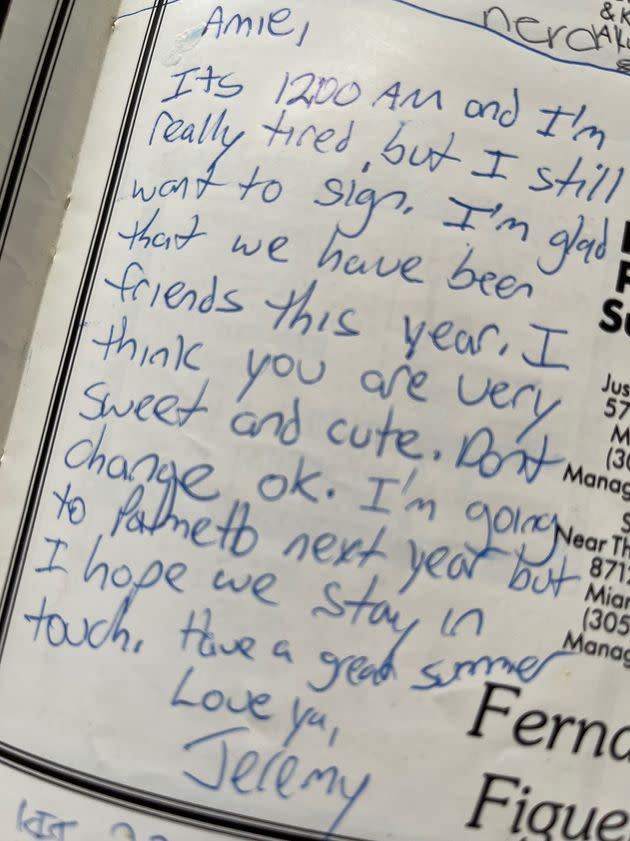 & K
nerd
Amie,
Its 12:00 AM and I'm
really tired, but I still
want to sign. I'm glad
that we have been
friends this year. I
think you are very
sweet and cute. Dont
change ok. I'm going
to Palmetto next year but
I hope we stay in
touch. Have a great summer
Love ya,
Jeremy
Su
Jus
57
M
(30
Manag
S
Near Th
871
Miar
(305
Manag
Ferna
Figue